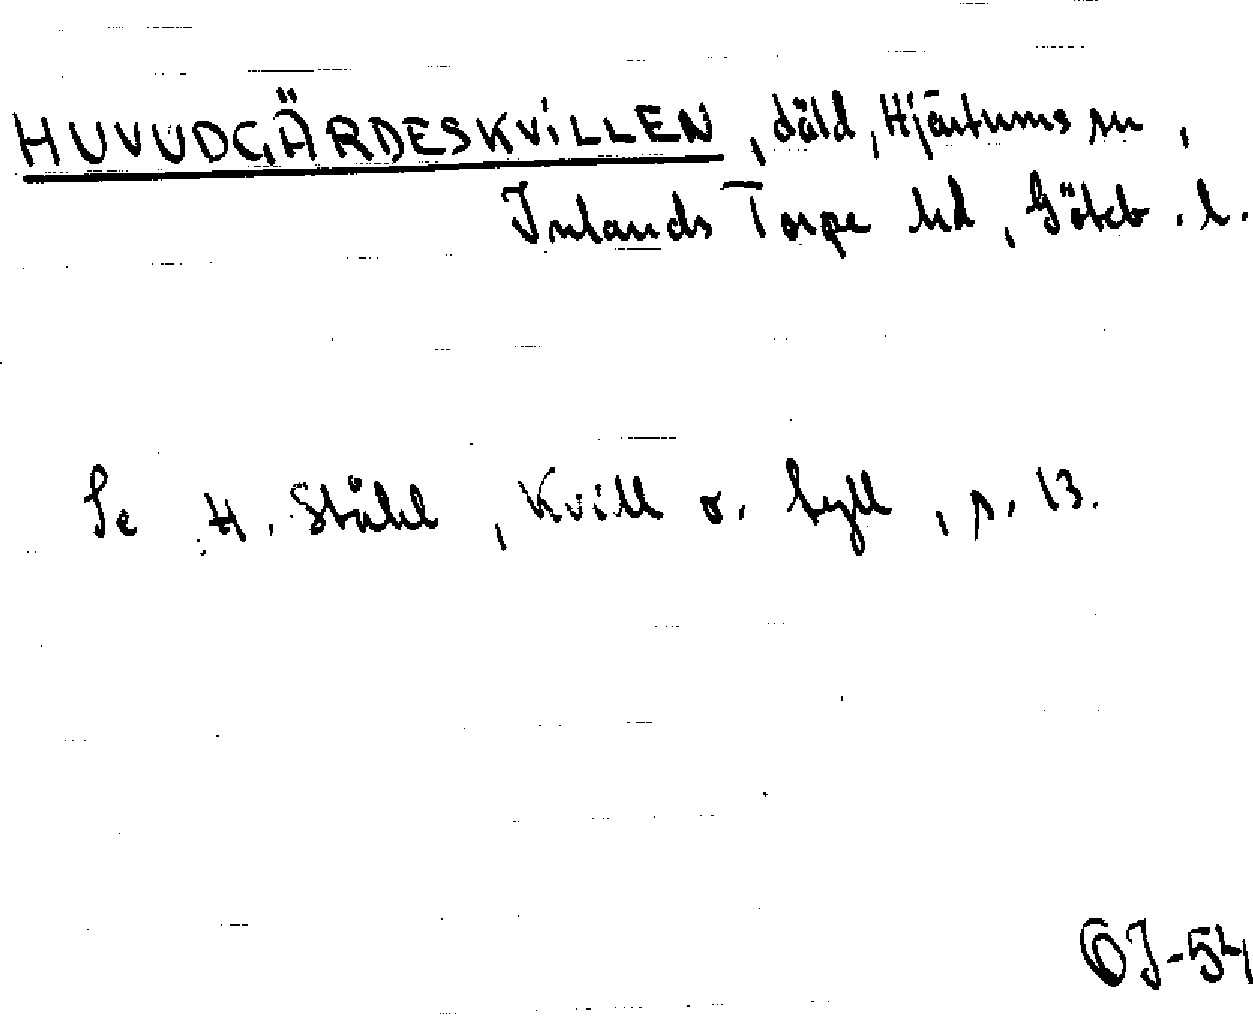 HUVUDGÄRDESKVILLEN, däld, Hjärtums sn,
Inlands Torpe hd, Göteb. l.
Se H. Ståhl, Kvill o. tyll, p. 13.
OJ-54